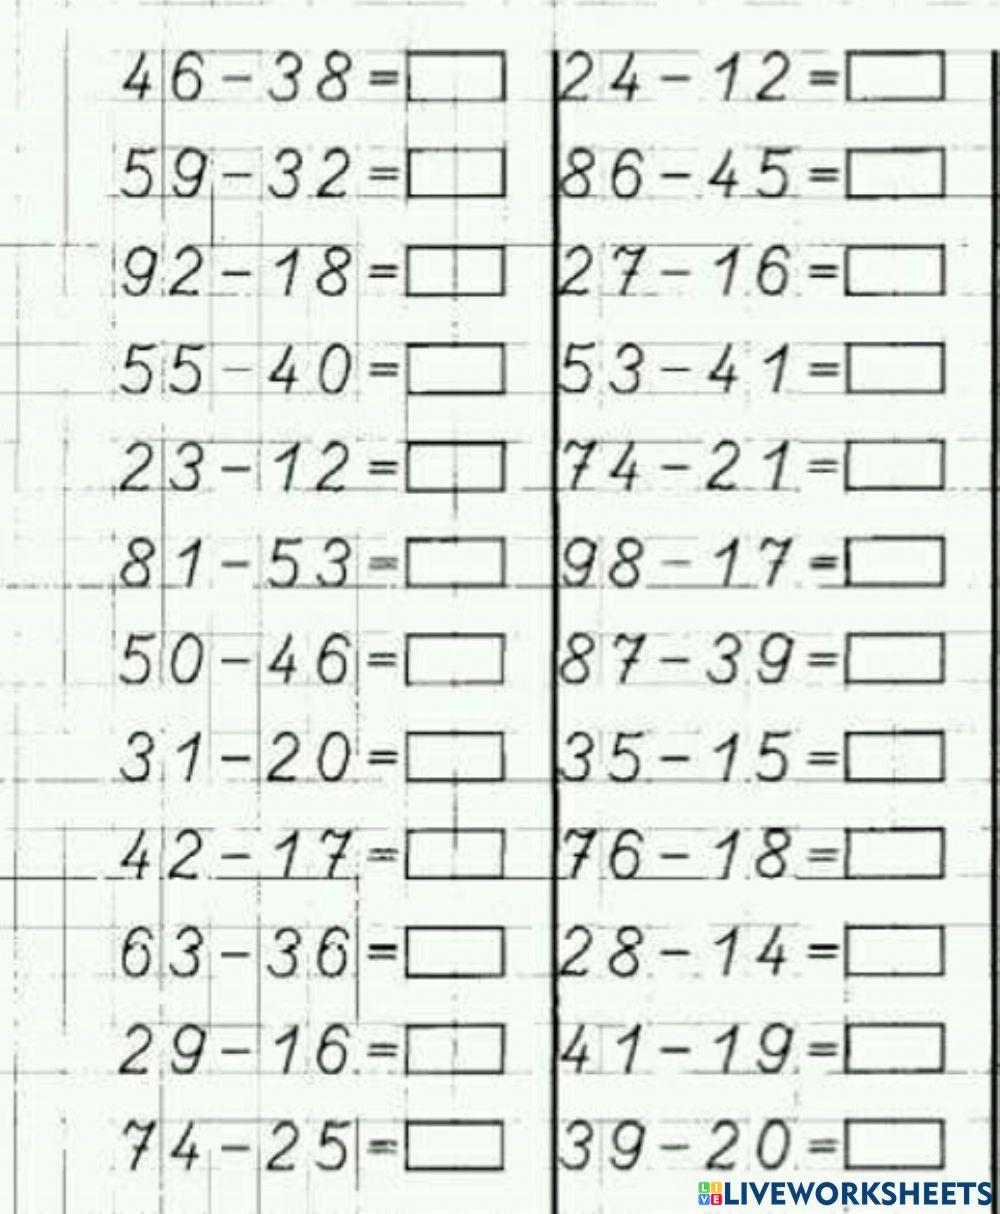 46-38=
59-32=
92-18=
55-40=
23-12=
81-53=
50-46=
31-20=
42-17=
63-36=
29-16=
74-25=
24-12=
86-45=
27-16=
53-41=
74-21=
98-17=
87-39=
35-15=
76-18=
28-14=
41-19=
39-20=
LIVEWORKSHEETS